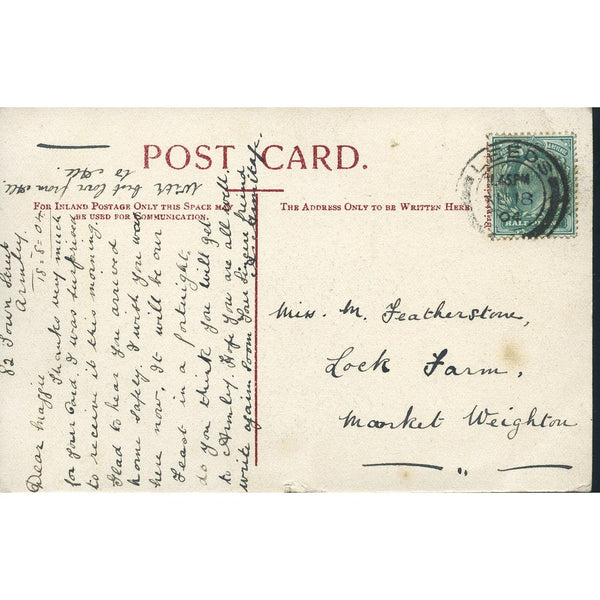 POST CARD.
FOR INLAND POSTAGE ONLY THIS SPACE MAY
BE USED FOR COMMUNICATION.
THE ADDRESS ONLY TO BE WRITTEN HERE.
LEEDS
1.45 PM
18
HALF
Miss. M. Featherstone,
Lock Farm,
Market Weighton
82 Town Street
Armley
18.5.04
Dear Maggie
Thanks very much
for your Card, I was surprised
to receive it this morning.
Glad to hear you arrived
home safely. I wish you was
here now. It will be our
Feast in a fortnight,
do you think you will get
to Armley. Hope you are all well.
write again soon Your Sincere friend
With best love from all.
to all.